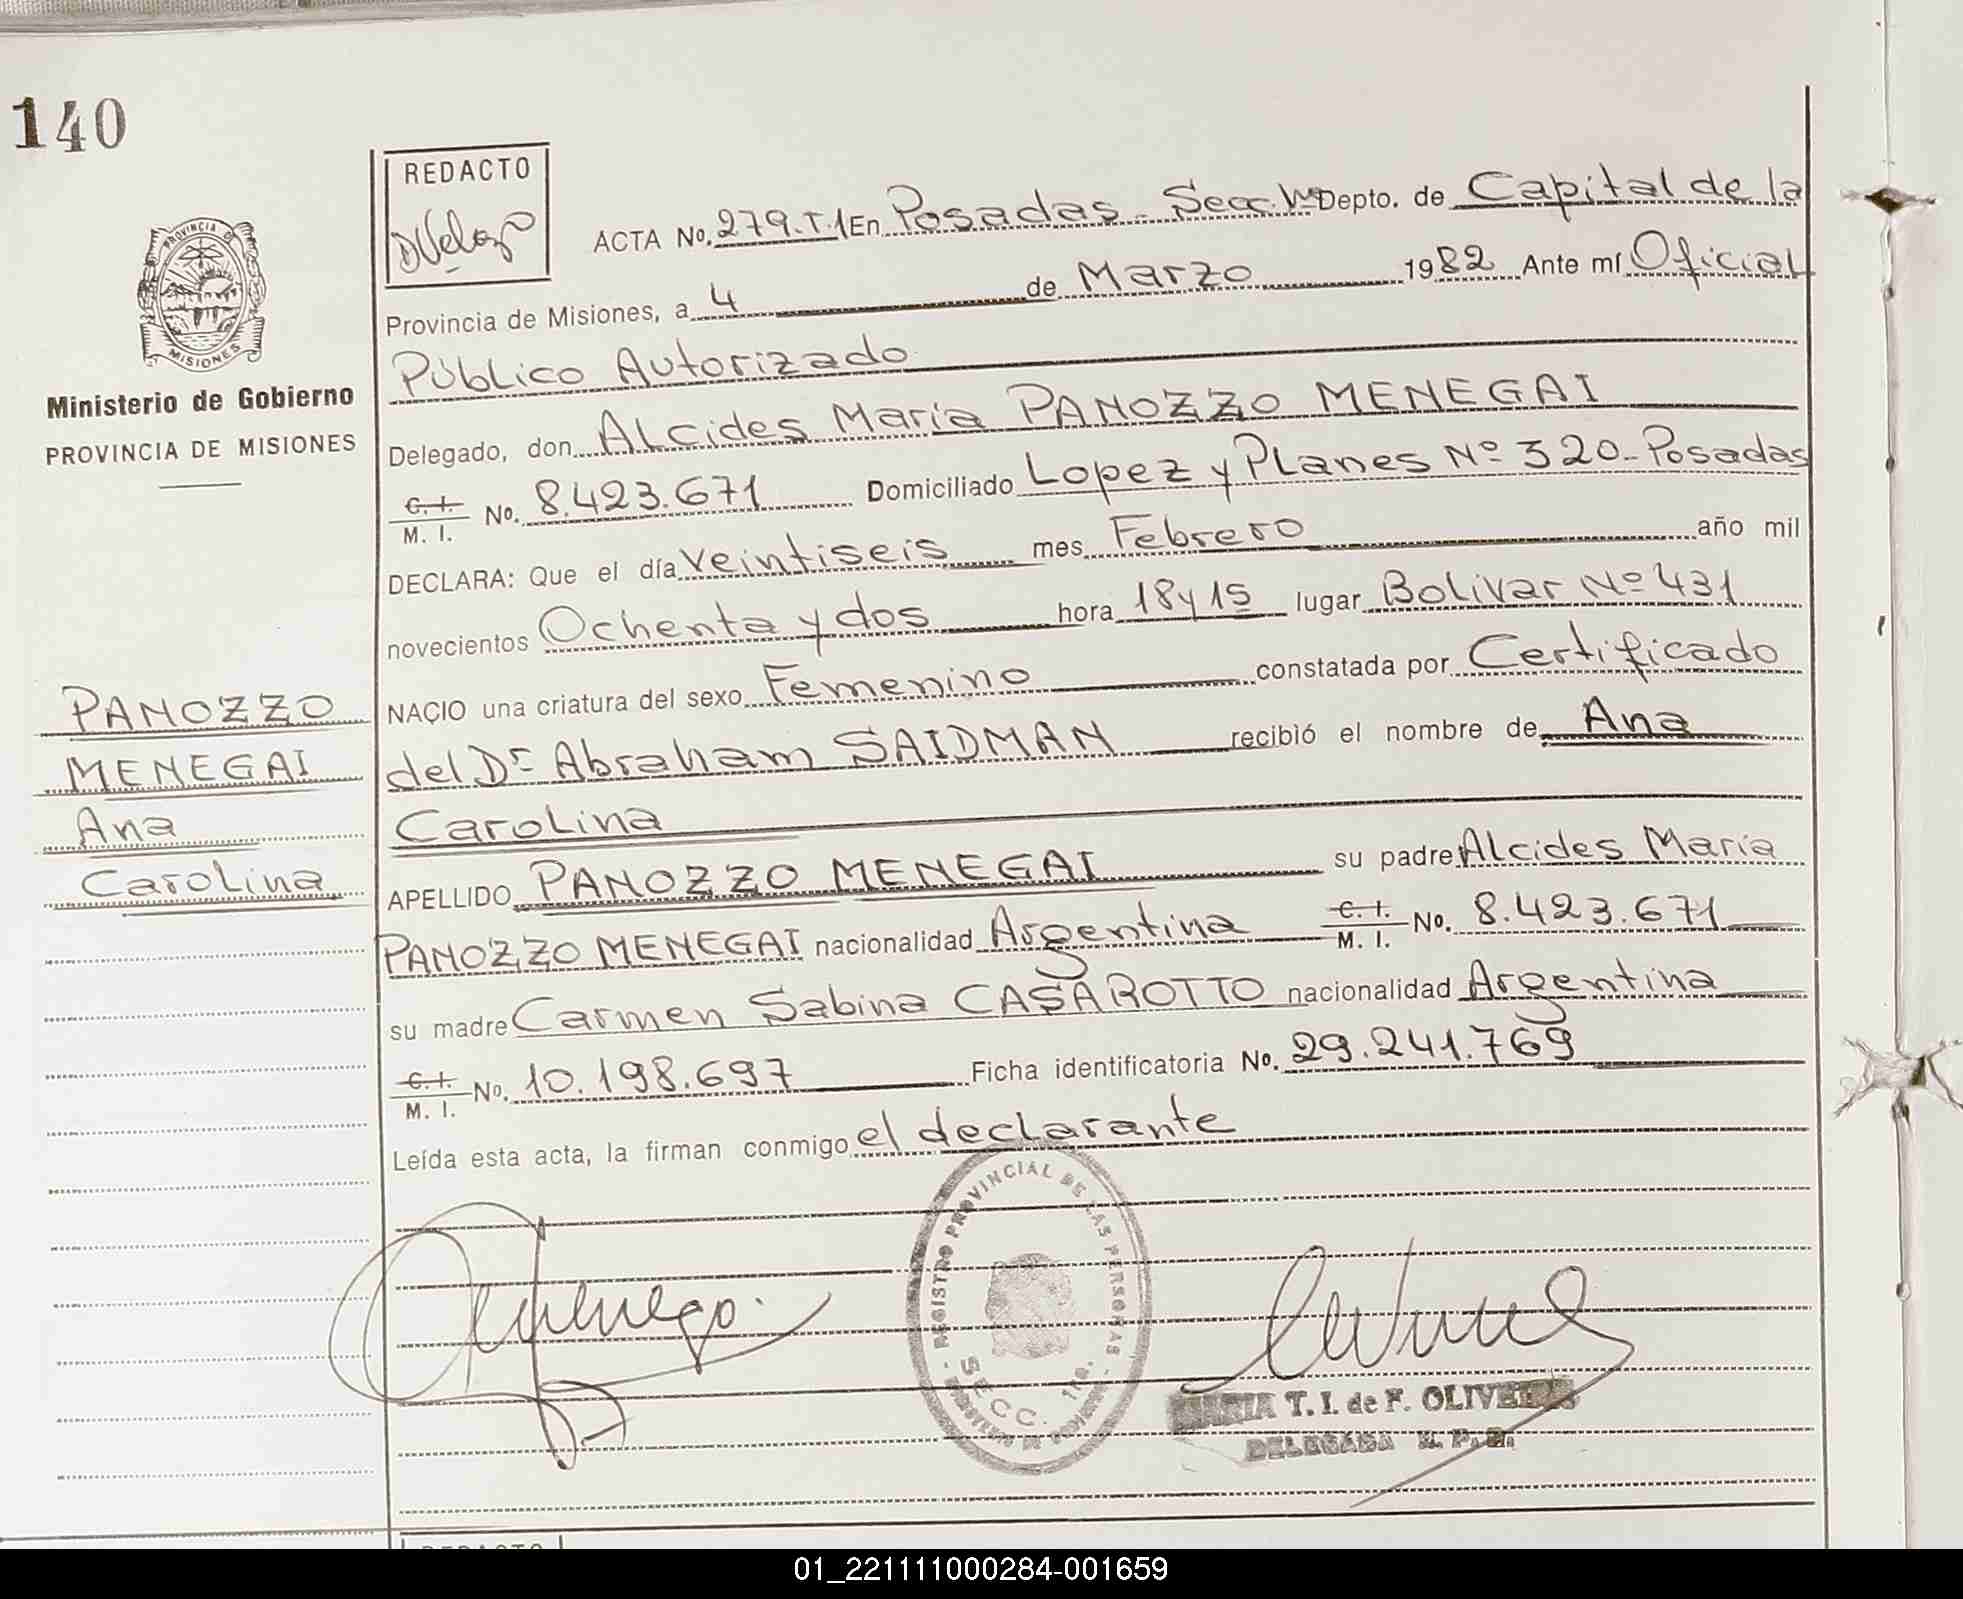 140
REDACTO
DVelozo
ACTA No. 279.T.1 En Posadas - Secc. 1ra Depto. de Capital de la
Provincia de Misiones, a 4 de Marzo 1982 Ante mí Oficial
Público Autorizado
Delegado, don Alcides María PANOZZO MENEGAI
C. I. M. I. No. 8.423.671 Domiciliado Lopez y Planes Nº 320 - Posadas
DECLARA: Que el día veintiseis mes Febrero año mil
novecientos Ochenta y dos hora 18 y 15 lugar Bolivar Nº 431
NACIO una criatura del sexo Femenino constatada por Certificado
del Dr Abraham SAIDMAN recibió el nombre de Ana
Carolina
APELLIDO PANOZZO MENEGAI su padre Alcides María
PANOZZO MENEGAI nacionalidad Argentina C. I. M. I. No. 8.423.671
su madre Carmen Sabina CASAROTTO nacionalidad Argentina
C. I. M. I. No. 10.198.697 Ficha identificatoria No. 29.241.769
Leída esta acta, la firman conmigo el declarante
PROVINCIA DE
MISIONES
Ministerio de Gobierno
PROVINCIA DE MISIONES
PANOZZO
MENEGAI
Ana
Carolina
REGISTRO PROVINCIAL DE LAS PERSONAS
SECC. 1ra.
MARIA T. I. de F. OLIVEIRA
DELEGADA R. P. P.
REDACTO
01_221111000284-001659